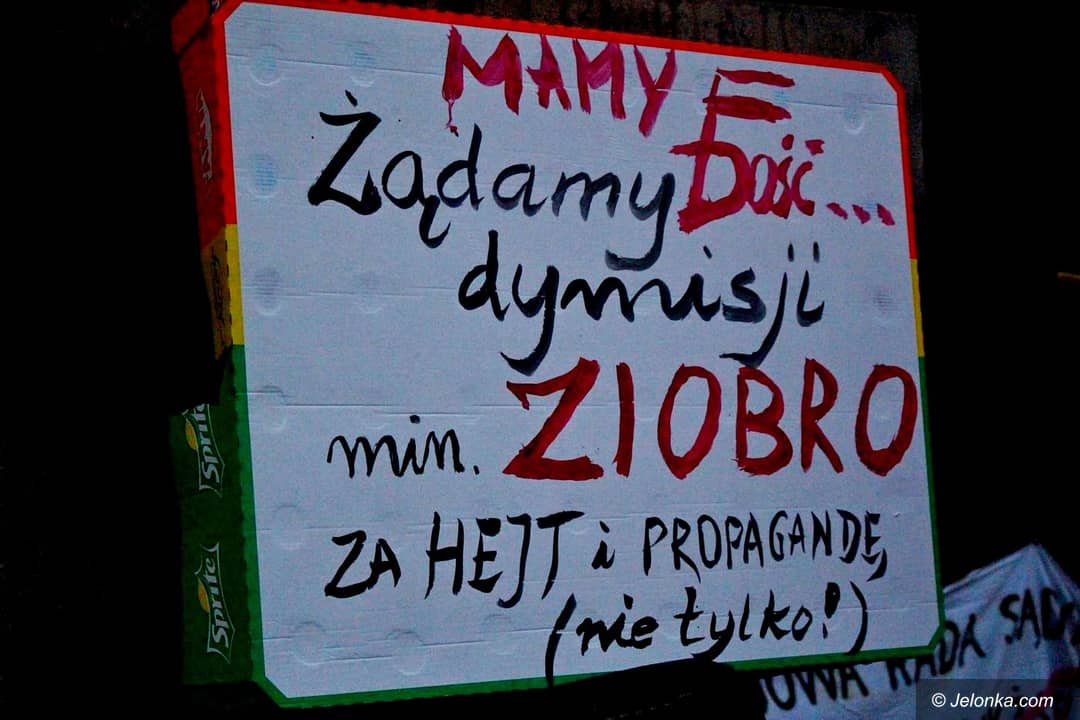 MAMY
Dość...
Żądamy
dymisji
min. ZIOBRO
ZA HEJT i PROPAGANDĘ,
(nie tylko!)
Sprite
Sprite
OWA RADA SĄD
© Jelonka.com